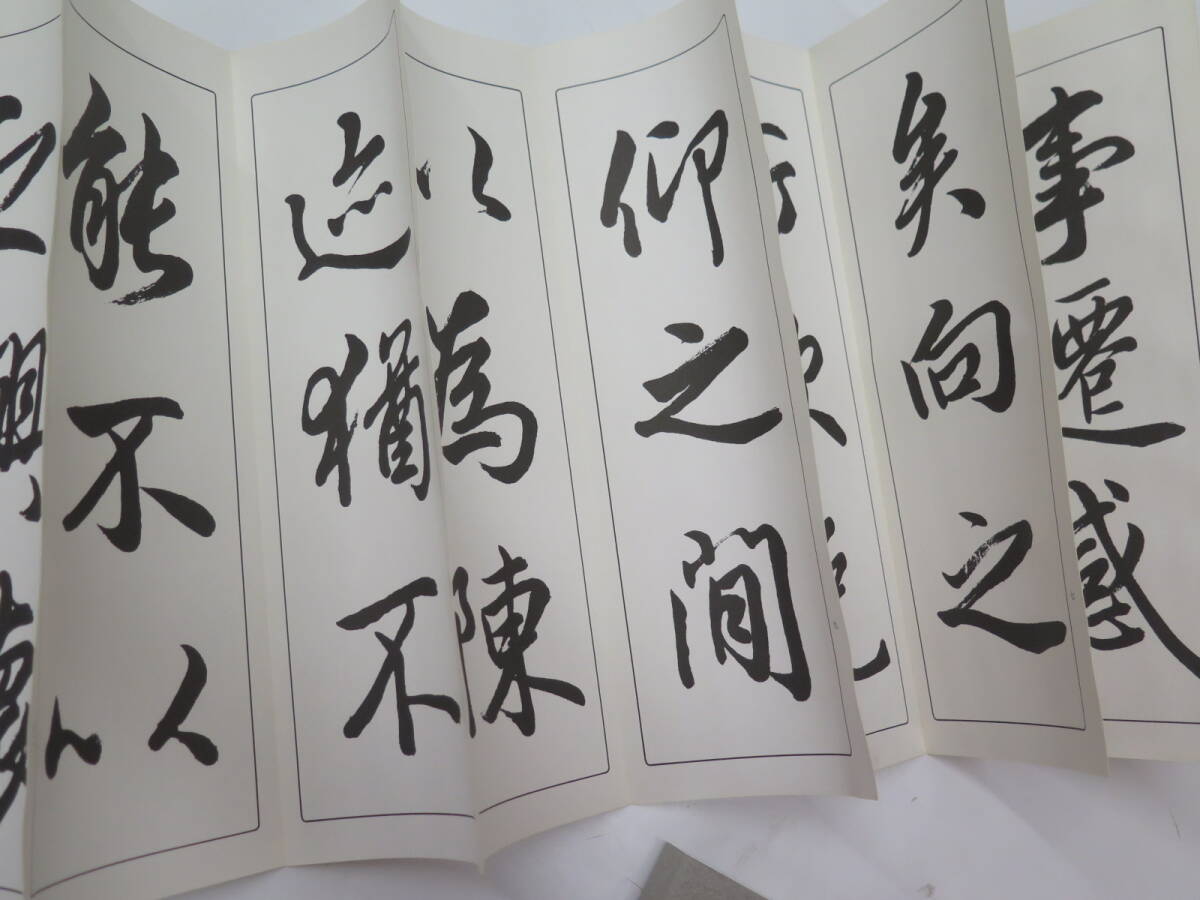 事遷感
矣向之
仰之間
以為陳
迹猶不
能不以